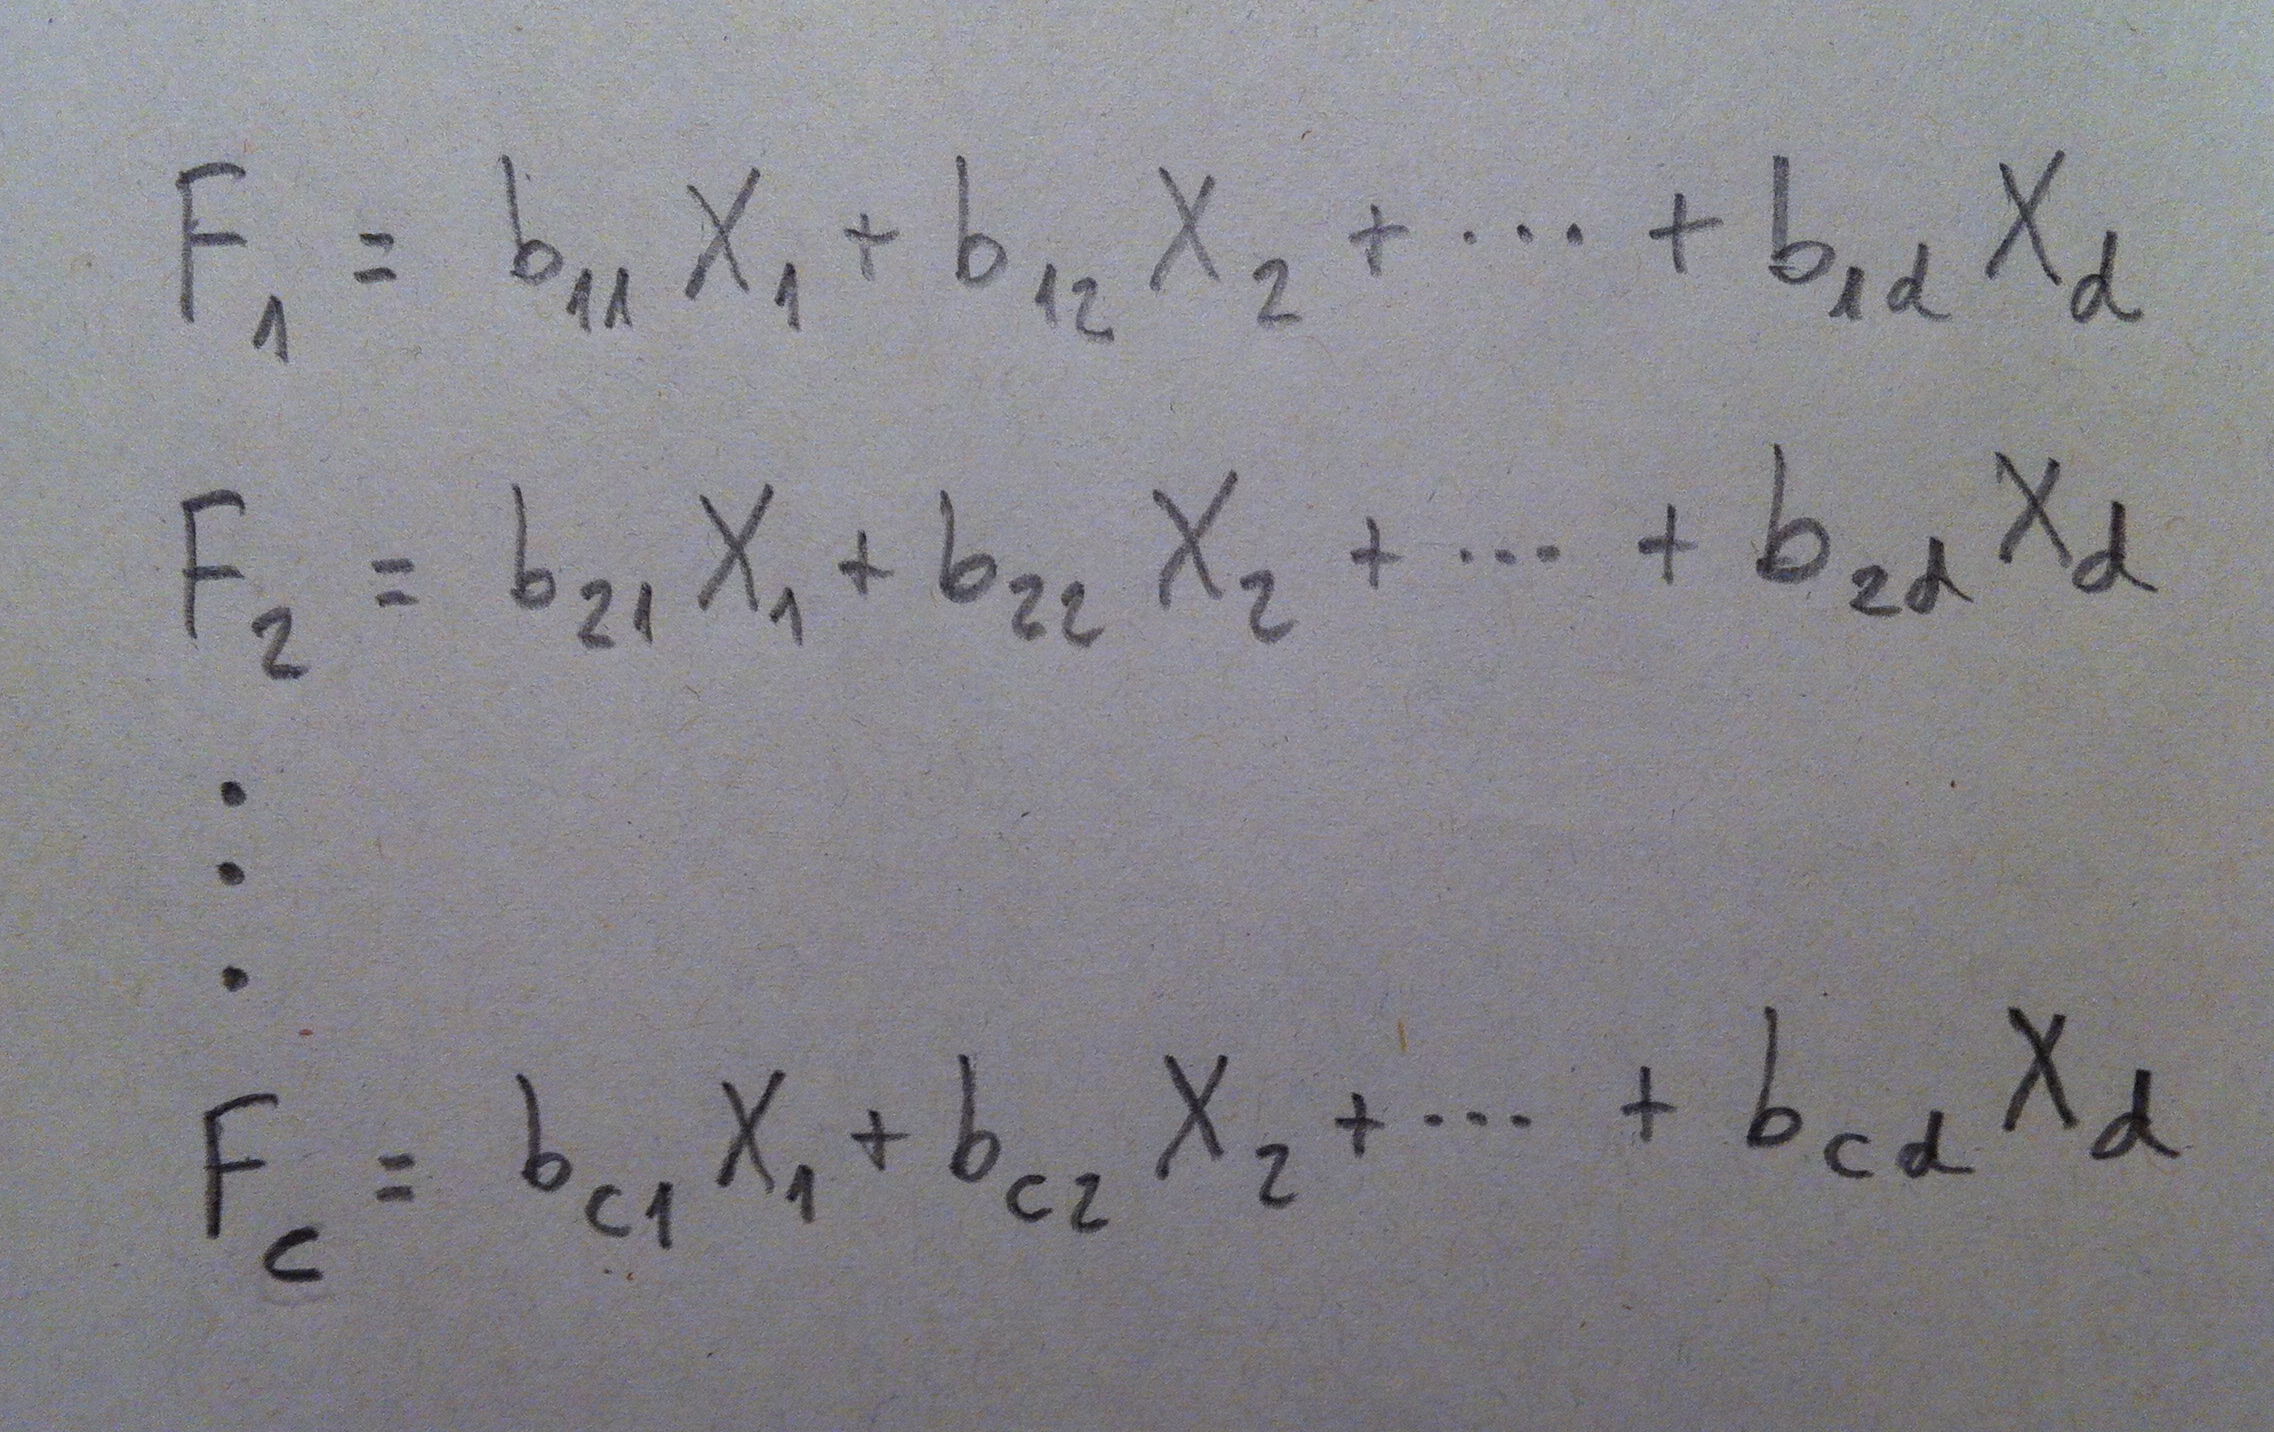 F₁ = b₁₁ X₁ + b₁₂ X₂ + ··· + b₁d Xd
F₂ = b₂₁ X₁ + b₂₂ X₂ + ··· + b₂d Xd
⋮
Fc = bc₁ X₁ + bc₂ X₂ + ··· + bcd Xd